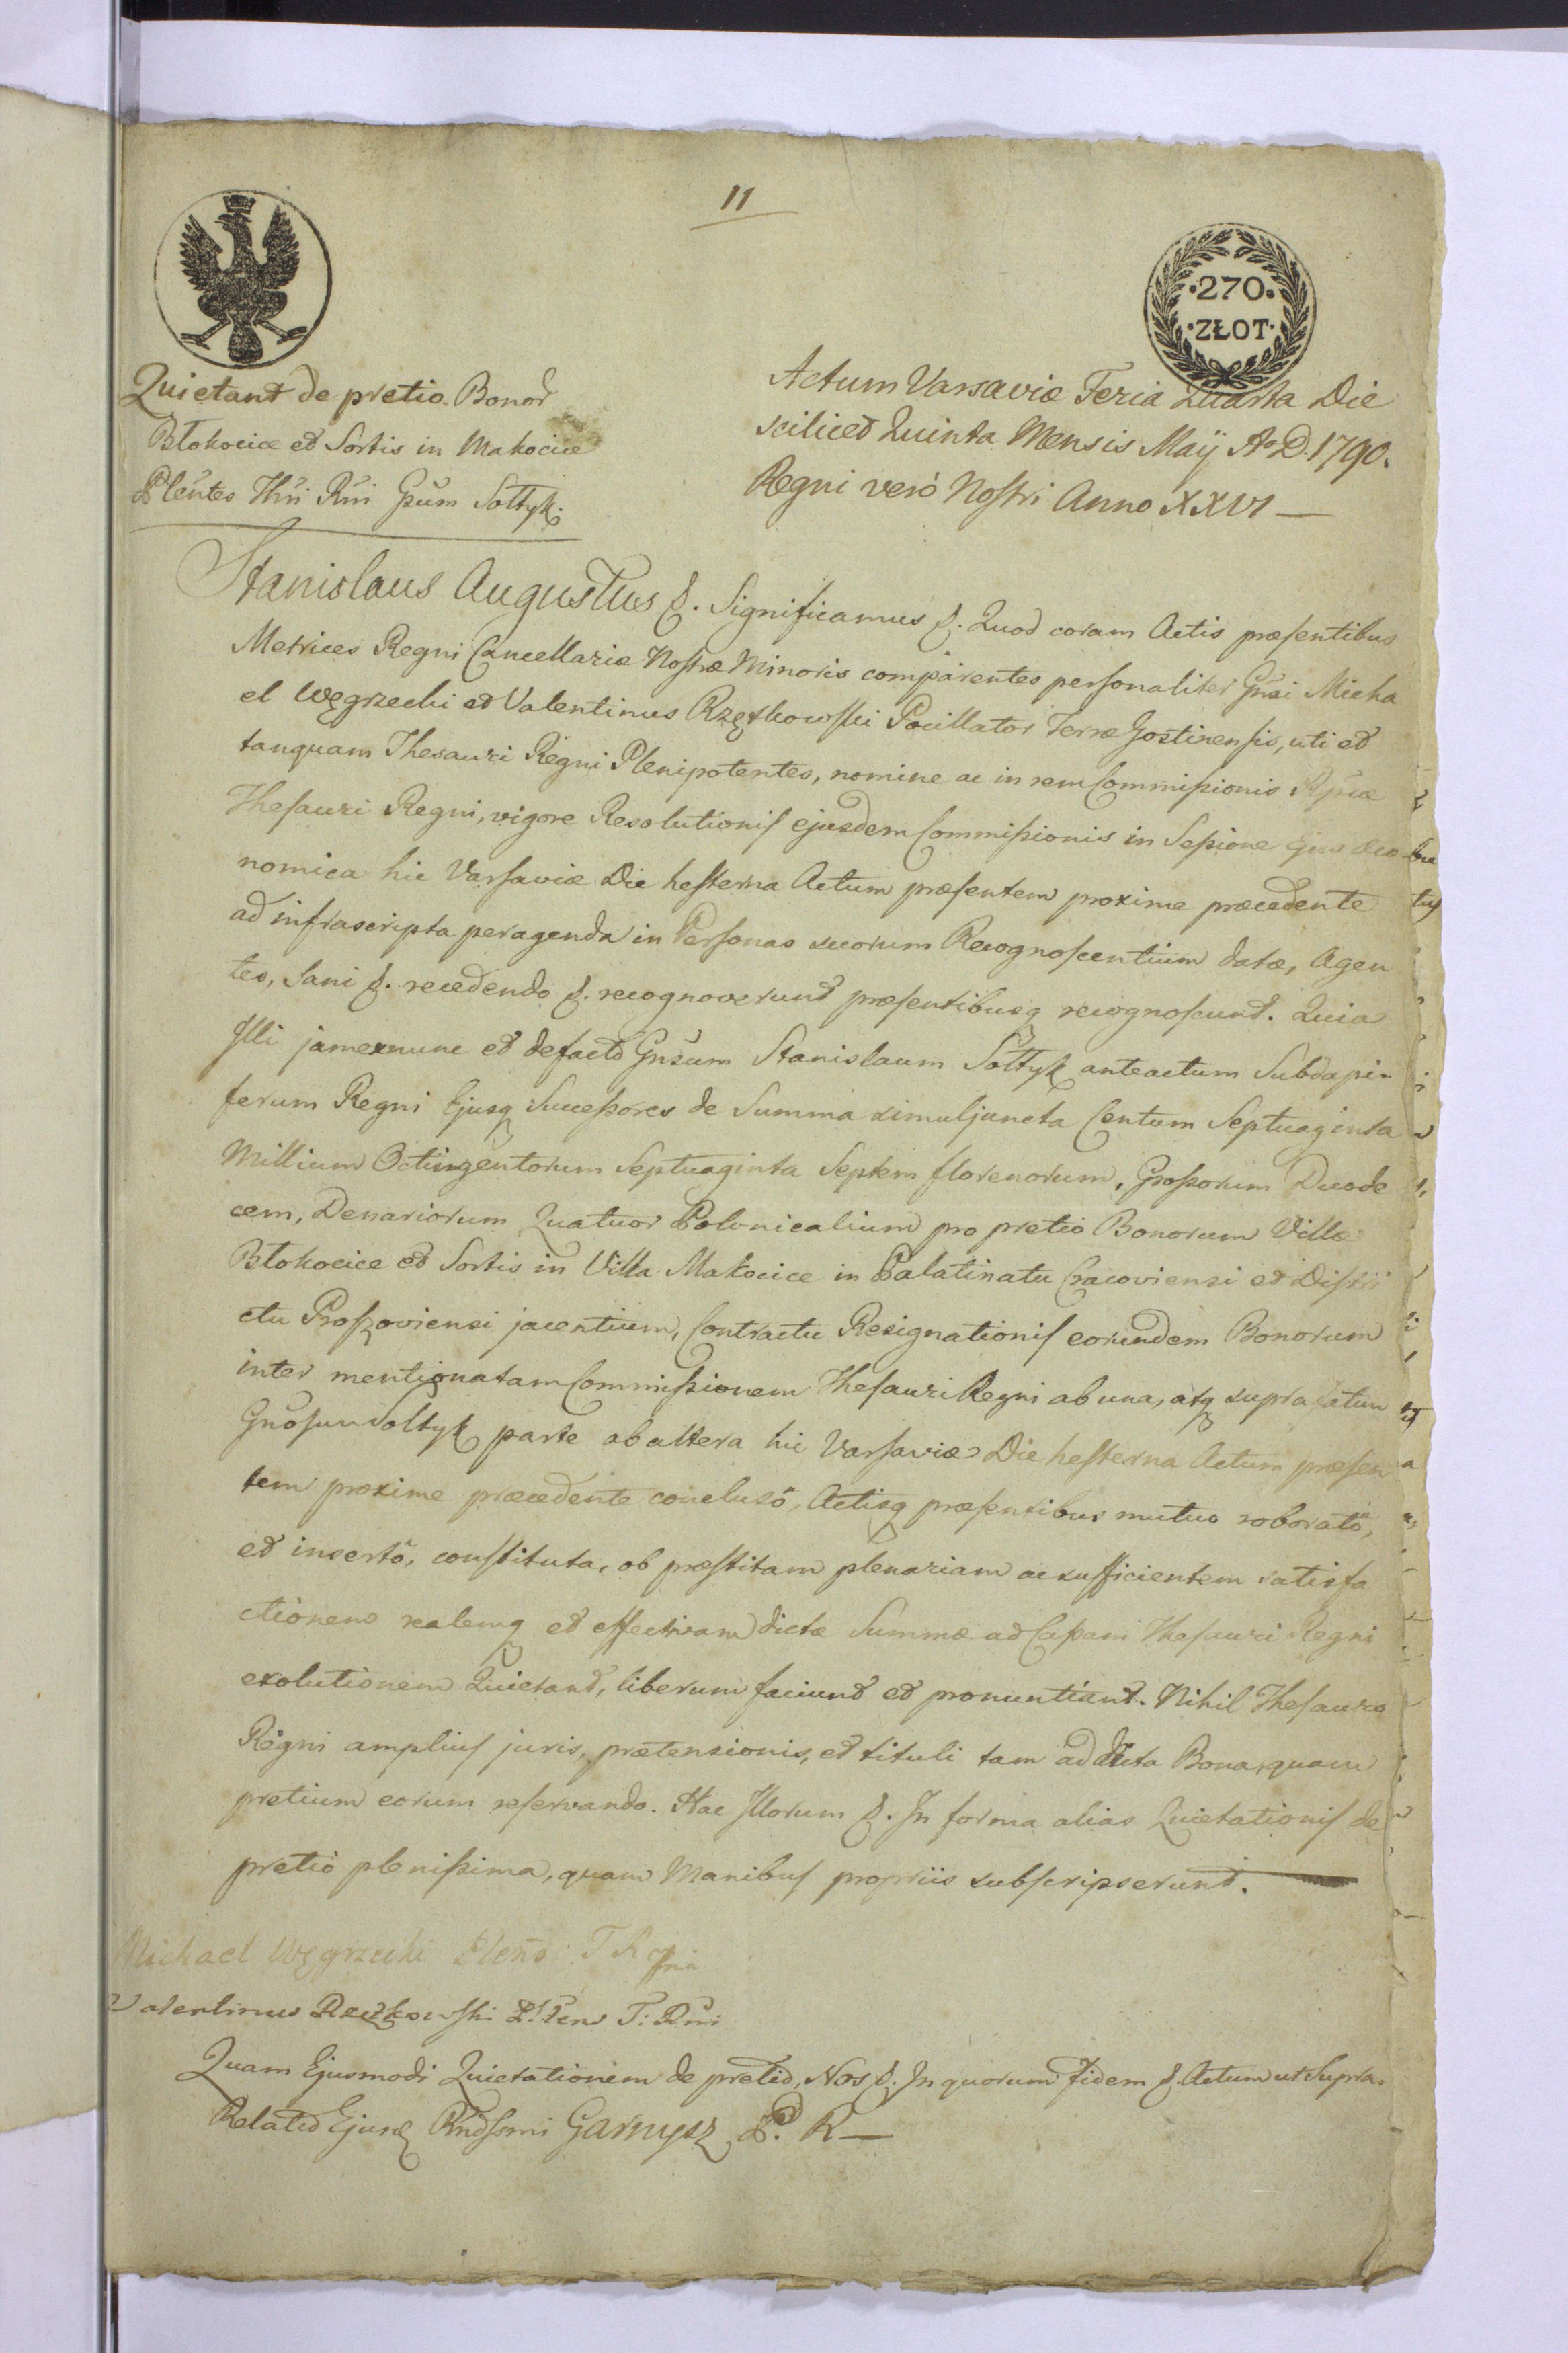 11
·270·
·ZŁOT·
Quietant de pretio Bonor
Błokocice et Sortis in Makocice
Plentes Thri Rni Gsum Sołtyk.
Actum Varsaviæ Feria Quarta Die
scilicet Quinta Mensis Maij Ao D. 1790.
Regni verò Nostri Anno XXVI —
Stanislaus Augustus &. Significamus &. Quod coram Actis præsentibus
Metrices Regni Cancellariæ Nostræ Minoris comparentes personaliter Gnsi Micha
el Węgrzecki et Valentinus Rzętkowski Pocillator Terræ Gostinensis, uti et
tanquam Thesauri Regni Plenipotentes, nomine ac in rem Commissionis Rpcæ
Thesauri Regni, vigore Resolutionis ejusdem Commissionis in Sessione Ejus Œco
nomica hic Varsaviæ Die hesterna Actum præsentem proxime præcedente
ad infrascripta peragenda in Personas suorum Recognoscentium datæ, Agen
tes, Sani &. recedendo &. recognoverunt præsentibusq recognoscunt. Quia
Illi jamexnunc et defacto Gnsum Stanislaum Sołtyk anteactum Subdapi-
ferum Regni Ejusq Successores de Summa simuljuncta Centum Septuaginta
Millium Octingentorum Septuaginta Septem florenorum, Grossorum Duode
cem, Denariorum Quatuor Polonicalium pro pretio Bonorum Villæ
Błokocice et Sortis in Villa Makocice in Palatinatu Cracoviensi et Distri
ctu Proszoviensi jacentium, Contractu Resignationis eorundem Bonorum
inter mentionatam Commissionem Thesauri Regni ab una, atq supra
Gnosum Sołtyk parte ab altera hic Varsaviæ Die hesterna Actum præsen
tem proxime præcedente conclusô, Actisq præsentibus mutuo roboratô,
et insertô, constituta, ob præstitam plenariam ac sufficientem satisfa
ctionem realemq et effectivam dictæ Summæ ad Cassam Thesauri Regni
exolutionem Quietant, liberum faciunt et pronuntiant. Nihil Thesauro
Regni amplius juris, prætensionis, et tituli tam ad dicta Bona, quam
pretium eorum reservando. Hac Illorum &. In forma alias Quietationis de
pretiô plenissima, quam Manibus propriis subscripserunt.
Michael Węgrzecki Plens T R
Valentinus Rzętkowski T: Rni
Quam Ejusmodi Quietationem de pretio, Nos &. In quorum fidem &. Actum ut Supra.
Relatio Ejusd Rndssmi Garnysz P. R —